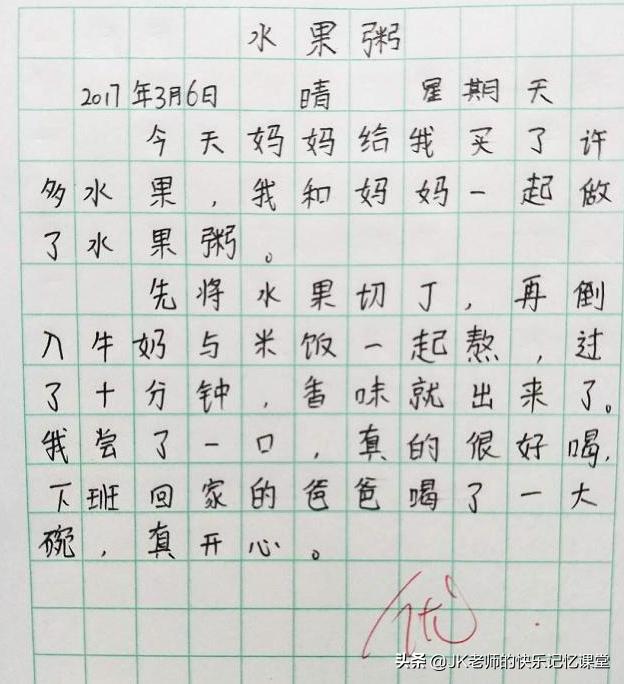 水果粥
2017年3月6日 晴 星期天
今天妈妈给我买了许
多水果，我和妈妈一起做
了水果粥。
先将水果切丁，再倒
入牛奶与米饭一起熬，过
了十分钟，香味就出来了。
我尝了一口，真的很好喝，
下班回家的爸爸喝了一大
碗，真开心。
优
头条@JK老师的快乐记忆课堂